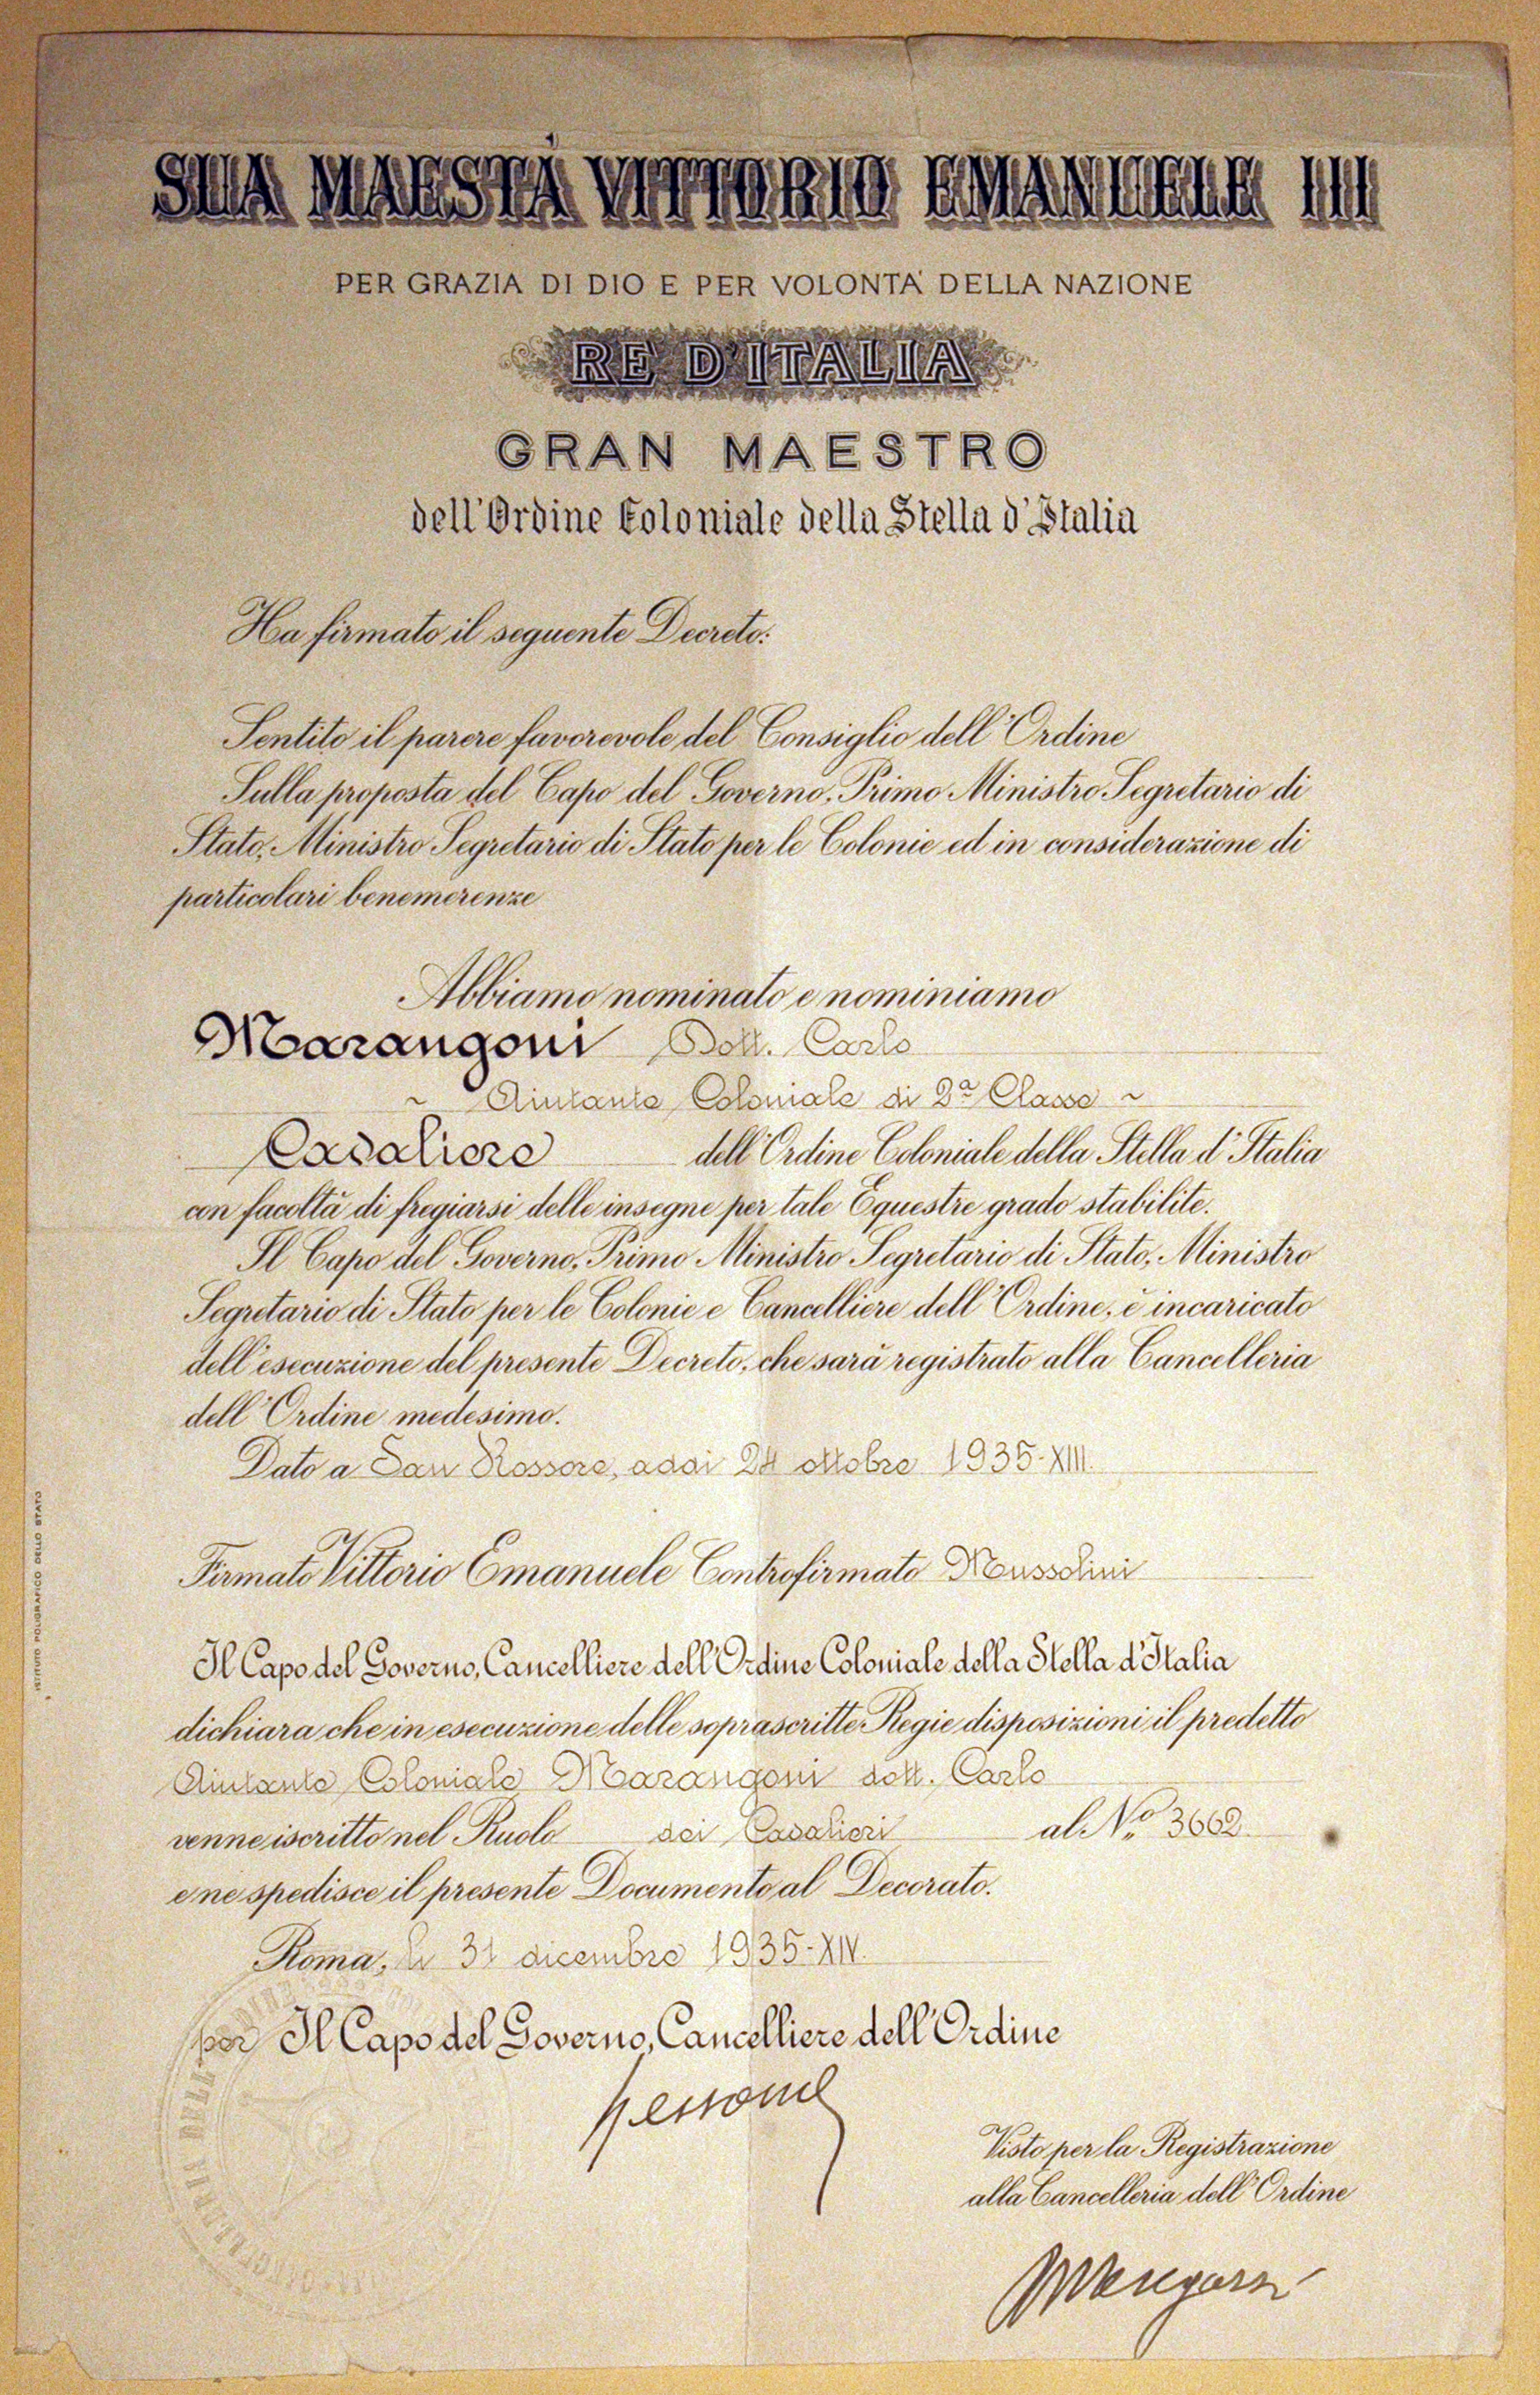 SUA MAESTÀ VITTORIO EMANUELE III
PER GRAZIA DI DIO E PER VOLONTA' DELLA NAZIONE
RE D'ITALIA
GRAN MAESTRO
dell'Ordine Coloniale della Stella d'Italia
Ha firmato il seguente Decreto:
Sentito il parere favorevole del Consiglio dell'Ordine
Sulla proposta del Capo del Governo, Primo Ministro Segretario di
Stato, Ministro Segretario di Stato per le Colonie ed in considerazione di
particolari benemerenze
Abbiamo nominato e nominiamo
Marangoni Dott. Carlo
~ Aiutante Coloniale di 2ª Classe ~
Cavaliere dell'Ordine Coloniale della Stella d'Italia
con facoltà di fregiarsi delle insegne per tale Equestre grado stabilite.
Il Capo del Governo, Primo Ministro Segretario di Stato, Ministro
Segretario di Stato per le Colonie e Cancelliere dell'Ordine, è incaricato
dell'esecuzione del presente Decreto, che sarà registrato alla Cancelleria
dell'Ordine medesimo.
Dato a San Rossore, addì 24 ottobre 1935-XIII.
Firmato Vittorio Emanuele Controfirmato Mussolini
Il Capo del Governo, Cancelliere dell'Ordine Coloniale della Stella d'Italia
dichiara che in esecuzione delle soprascritte Regie disposizioni il predetto
Aiutante Coloniale Marangoni dott. Carlo
venne iscritto nel Ruolo dei Cavalieri al N.º 3662
e ne spedisce il presente Documento al Decorato.
Roma, li 31 dicembre 1935-XIV.
per Il Capo del Governo, Cancelliere dell'Ordine
Visto per la Registrazione
alla Cancelleria dell'Ordine
ISTITUTO POLIGRAFICO DELLO STATO